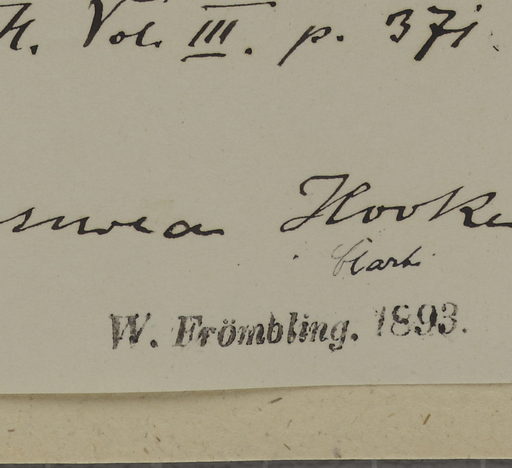 Vol. III. p. 371.
Hooke
Clarb.
W. Frömbling. 1893.